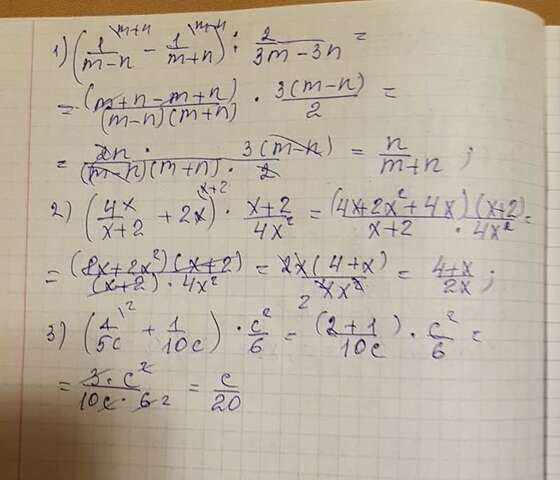 1) (1/(m-n) \m+n - 1/(m+n) \m-n) : 2/(3m-3n) =
= (m+n-m+n)/((m-n)(m+n)) · 3(m-n)/2 =
= (2n · 3(m-n))/((m-n)(m+n) · 2) = n/(m+n) ;
2) (4x/(x+2) + 2x \x+2) · (x+2)/(4x²) = ((4x+2x²+4x)(x+2))/(x+2 · 4x²) =
= ((8x+2x²)(x+2))/((x+2) · 4x²) = 2x(4+x)/(2 4x²) = (4+x)/(2x) ;
3) (1/(5c) \2 + 1/(10c)) · c²/6 = (2+1)/(10c) · c²/6 =
= (3 · c²)/(10c · 6 2) = c/20